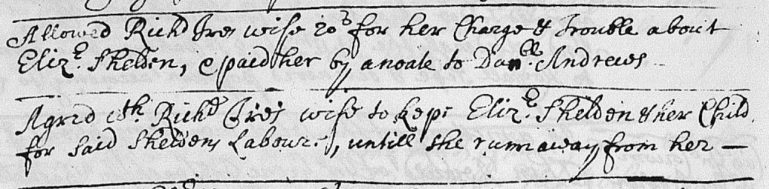 Allowed Rich.d Ires wife 20s for her Charge & Trouble about
Eliz.e Shelden, & paid her by a noate to Dan.ll Andrews
Agrid with Rich.d Ires wife to kepe Eliz.e Shelden & her Child
for said Sheldens Labour, untill she runn away from her —